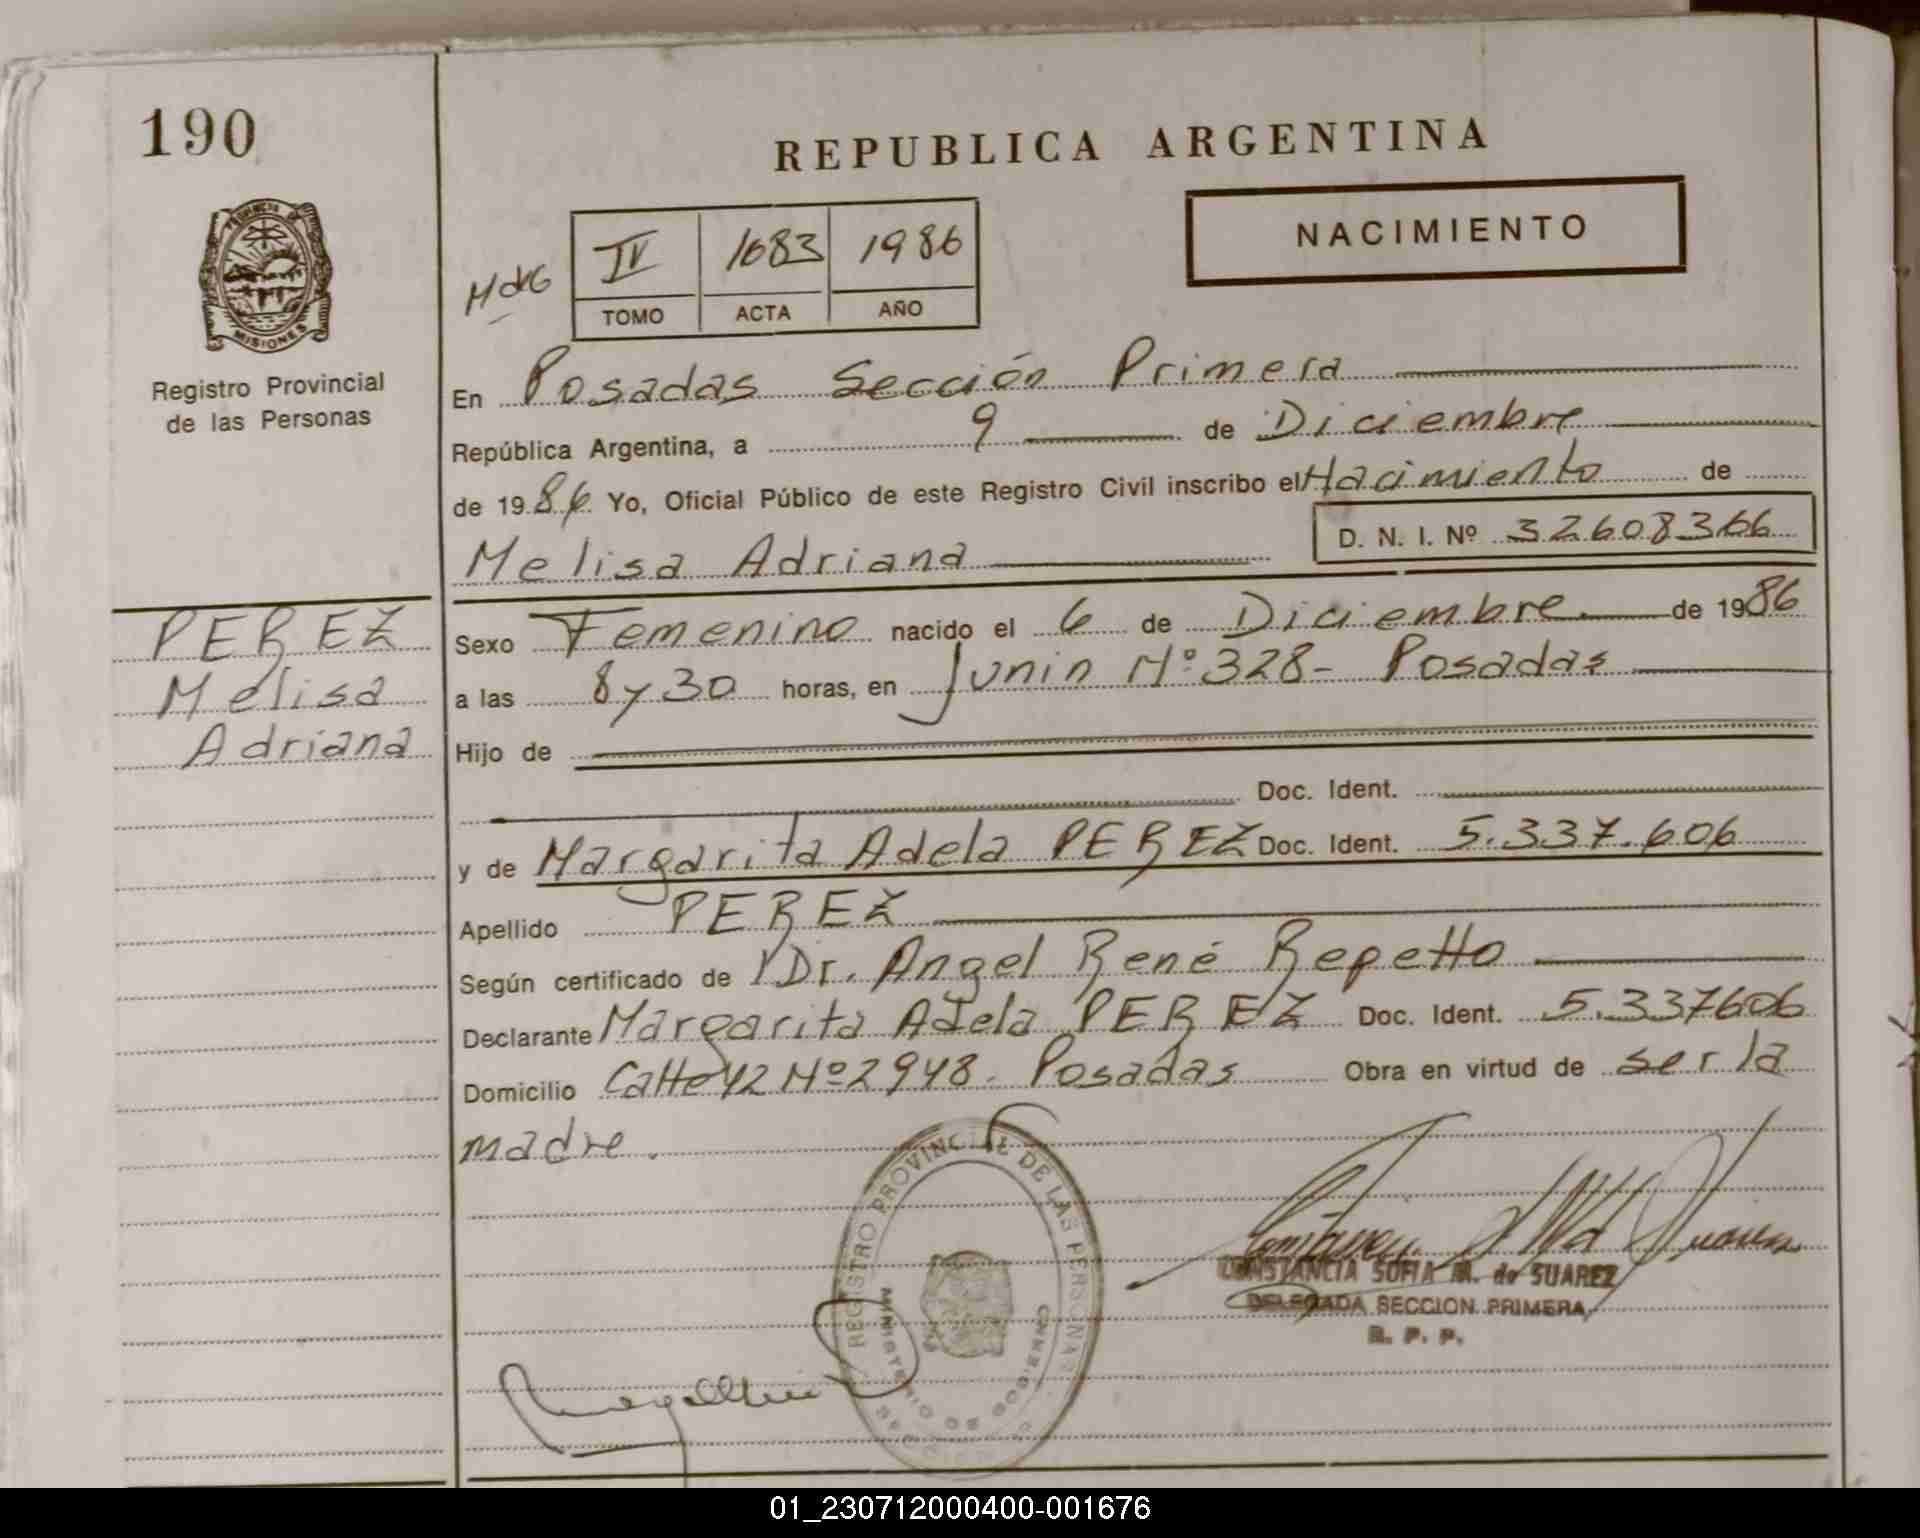 190
REPUBLICA ARGENTINA
PROVINCIA DE
MISIONES
Registro Provincial
de las Personas
NACIMIENTO
IV 1683 1986
TOMO ACTA AÑO
En Posadas Sección Primera
República Argentina, a 9 de Diciembre
de 1986 Yo, Oficial Público de este Registro Civil inscribo el Nacimiento de
Melisa Adriana D. N. I. Nº 32608366
PEREZ
Melisa
Adriana
Sexo Femenino nacido el 6 de Diciembre de 1986
a las 8 y 30 horas, en Junin Nº 328- Posadas
Hijo de
Doc. Ident.
y de Margarita Adela PEREZ Doc. Ident. 5.337.606
Apellido PEREZ
Según certificado de Dr. Angel René Repetto
Declarante Margarita Adela PEREZ Doc. Ident. 5.337606
Domicilio Calle 42 Nº 2948. Posadas Obra en virtud de ser la
madre.
REGISTRO PROVINCIAL DE LAS PERSONAS
MINISTERIO DE GOBIERNO
CONSTANCIA SOFIA M. de SUAREZ
DELEGADA SECCION PRIMERA
R. P. P.
01_230712000400-001676